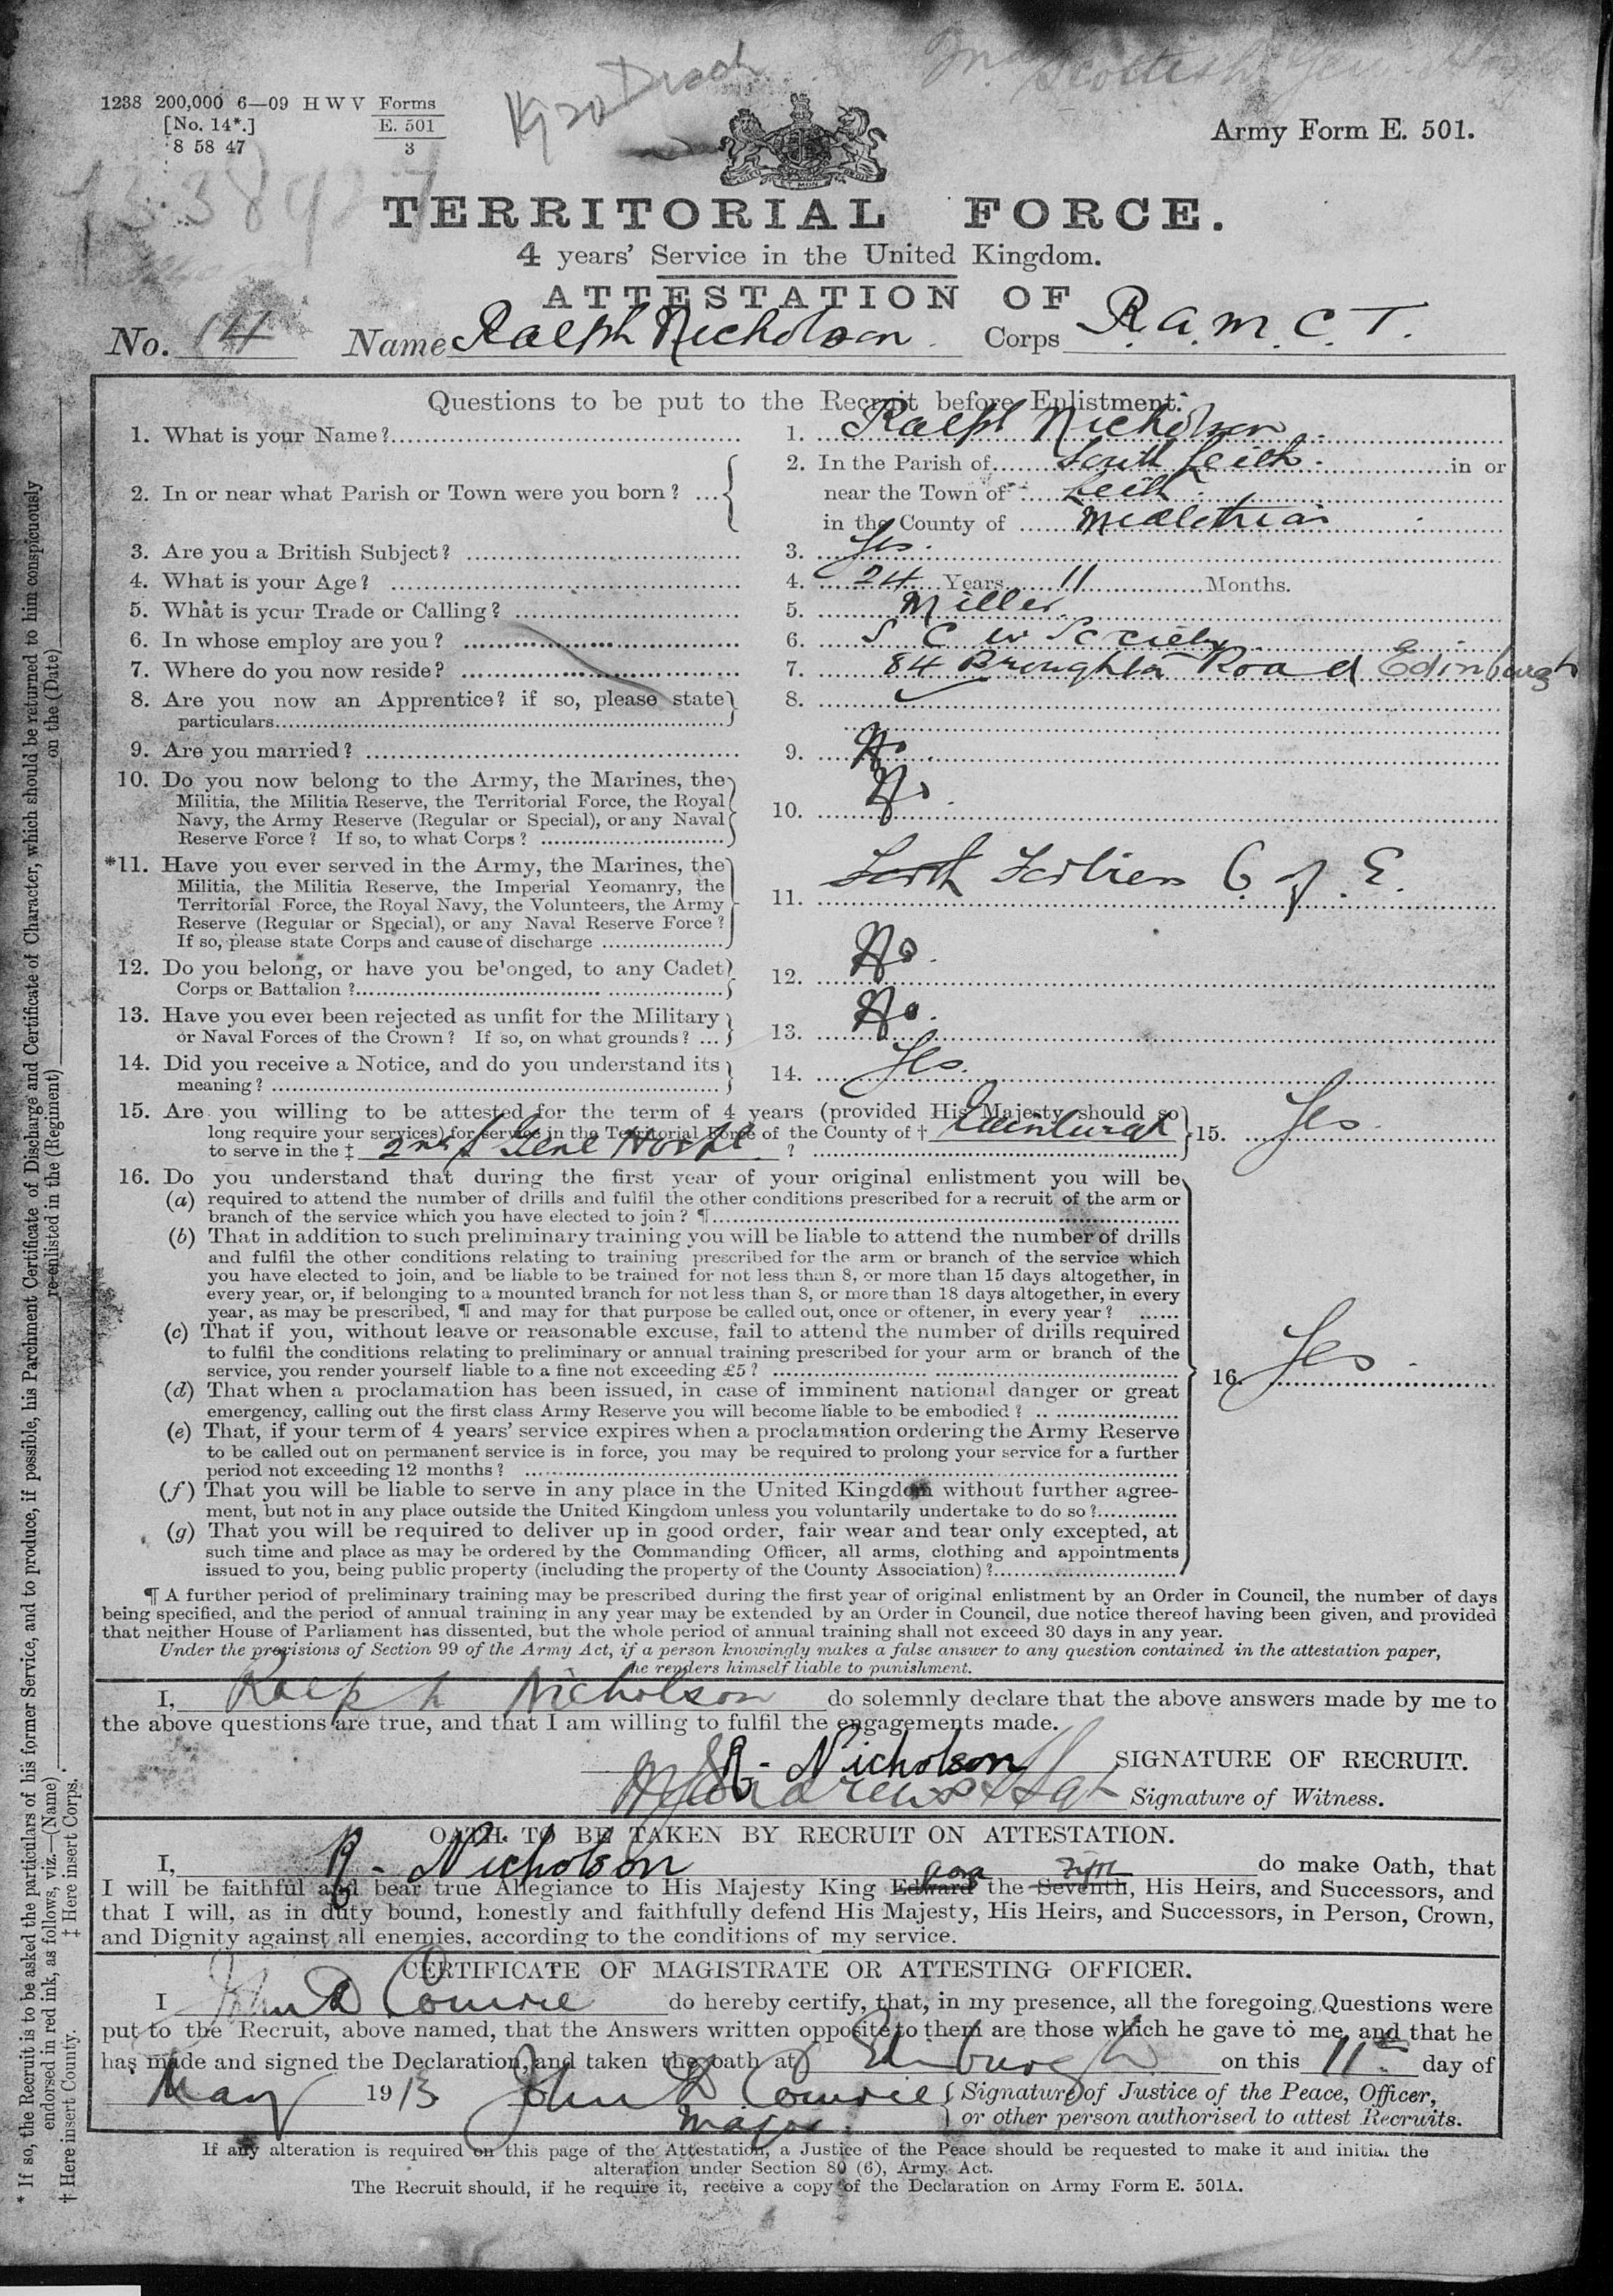 1238 200,000 6—09 H W V Forms
[No. 14*.] E. 501
8 58 47 3
Army Form E. 501.
TERRITORIAL FORCE.
4 years' Service in the United Kingdom.
ATTESTATION OF
No. 14 Name Ralph Nicholson Corps R.A.M.C.T.
Questions to be put to the Recruit before Enlistment.
1. What is your Name? 1. Ralph Nicholson
2. In or near what Parish or Town were you born? ... 2. In the Parish of South Leith in or
near the Town of Leith
in the County of Midlothian
3. Are you a British Subject? 3. Yes.
4. What is your Age? 4. 24 Years 11 Months.
5. What is your Trade or Calling? 5. Miller
6. In whose employ are you? 6. S C W Society
7. Where do you now reside? 7. 84 Broughton Road Edinburgh
8. Are you now an Apprentice? if so, please state 8.
particulars
9. Are you married? 9. No.
10. Do you now belong to the Army, the Marines, the
Militia, the Militia Reserve, the Territorial Force, the Royal
Navy, the Army Reserve (Regular or Special), or any Naval
Reserve Force? If so, to what Corps? 10. No.
*11. Have you ever served in the Army, the Marines, the
Militia, the Militia Reserve, the Imperial Yeomanry, the
Territorial Force, the Royal Navy, the Volunteers, the Army
Reserve (Regular or Special), or any Naval Reserve Force?
If so, please state Corps and cause of discharge 11. C of E.
12. Do you belong, or have you belonged, to any Cadet
Corps or Battalion? 12. No.
13. Have you ever been rejected as unfit for the Military
or Naval Forces of the Crown? If so, on what grounds? ... 13. No.
14. Did you receive a Notice, and do you understand its
meaning? 14. Yes.
15. Are you willing to be attested for the term of 4 years (provided His Majesty should so
long require your services) for service in the Territorial Force of the County of † Edinburgh
to serve in the ‡ 2nd S Genl Hospl ? 15. Yes.
16. Do you understand that during the first year of your original enlistment you will be
(a) required to attend the number of drills and fulfil the other conditions prescribed for a recruit of the arm or
branch of the service which you have elected to join? ¶
(b) That in addition to such preliminary training you will be liable to attend the number of drills
and fulfil the other conditions relating to training prescribed for the arm or branch of the service which
you have elected to join, and be liable to be trained for not less than 8, or more than 15 days altogether, in
every year, or, if belonging to a mounted branch for not less than 8, or more than 18 days altogether, in every
year, as may be prescribed, ¶ and may for that purpose be called out, once or oftener, in every year?
(c) That if you, without leave or reasonable excuse, fail to attend the number of drills required
to fulfil the conditions relating to preliminary or annual training prescribed for your arm or branch of the
service, you render yourself liable to a fine not exceeding £5? 16. Yes.
(d) That when a proclamation has been issued, in case of imminent national danger or great
emergency, calling out the first class Army Reserve you will become liable to be embodied?
(e) That, if your term of 4 years' service expires when a proclamation ordering the Army Reserve
to be called out on permanent service is in force, you may be required to prolong your service for a further
period not exceeding 12 months?
(f) That you will be liable to serve in any place in the United Kingdom without further agree-
ment, but not in any place outside the United Kingdom unless you voluntarily undertake to do so?
(g) That you will be required to deliver up in good order, fair wear and tear only excepted, at
such time and place as may be ordered by the Commanding Officer, all arms, clothing and appointments
issued to you, being public property (including the property of the County Association)?
¶ A further period of preliminary training may be prescribed during the first year of original enlistment by an Order in Council, the number of days
being specified, and the period of annual training in any year may be extended by an Order in Council, due notice thereof having been given, and provided
that neither House of Parliament has dissented, but the whole period of annual training shall not exceed 30 days in any year.
Under the provisions of Section 99 of the Army Act, if a person knowingly makes a false answer to any question contained in the attestation paper,
he renders himself liable to punishment.
I, Ralph Nicholson do solemnly declare that the above answers made by me to
the above questions are true, and that I am willing to fulfil the engagements made.
R. Nicholson SIGNATURE OF RECRUIT.
Signature of Witness.
OATH TO BE TAKEN BY RECRUIT ON ATTESTATION.
I, R. Nicholson do make Oath, that
I will be faithful and bear true Allegiance to His Majesty King Edward the Seventh, His Heirs, and Successors, and
that I will, as in duty bound, honestly and faithfully defend His Majesty, His Heirs, and Successors, in Person, Crown,
and Dignity against all enemies, according to the conditions of my service.
CERTIFICATE OF MAGISTRATE OR ATTESTING OFFICER.
I John D Comrie do hereby certify, that, in my presence, all the foregoing Questions were
put to the Recruit, above named, that the Answers written opposite to them are those which he gave to me, and that he
has made and signed the Declaration, and taken the oath at Edinburgh on this 11th day of
May 1913 John D Comrie Signature of Justice of the Peace, Officer,
Major. or other person authorised to attest Recruits.
If any alteration is required on this page of the Attestation, a Justice of the Peace should be requested to make it and initial the
alteration under Section 80 (6), Army Act.
The Recruit should, if he require it, receive a copy of the Declaration on Army Form E. 501A.
* If so, the Recruit is to be asked the particulars of his former Service, and to produce, if possible, his Parchment Certificate of Discharge and Certificate of Character, which should be returned to him conspicuously
endorsed in red ink, as follows, viz.—(Name) re-enlisted in the (Regiment) on the (Date)
† Here insert County. ‡ Here insert Corps.